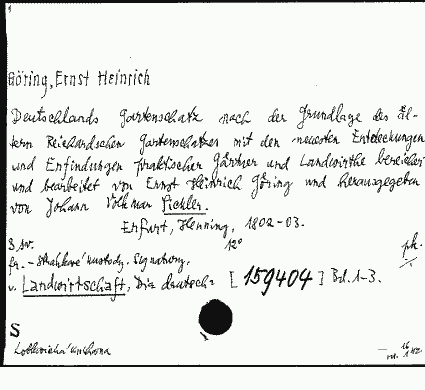 Göring, Ernst Heinrich
Deutschlands Gartenschatz nach der Grundlage des äl-
tern Reichardschen Gartenschatzes mit den neuesten Entdeckungen
und Erfindungen praktischen Gärtner und Landwirthe bereichert
und bearbeitet von Ernst Heinrich Göring und herausgegeben
von Johann Volkmar Sickler.
Erfurt, Henning, 1802-03.
3 sv. 12°
ph.
fr. - Strahovské Signatury.
v. Landwirtschaft, Die deutsche [159404] Bd. 1-3.
S
Lobkovická knihovna